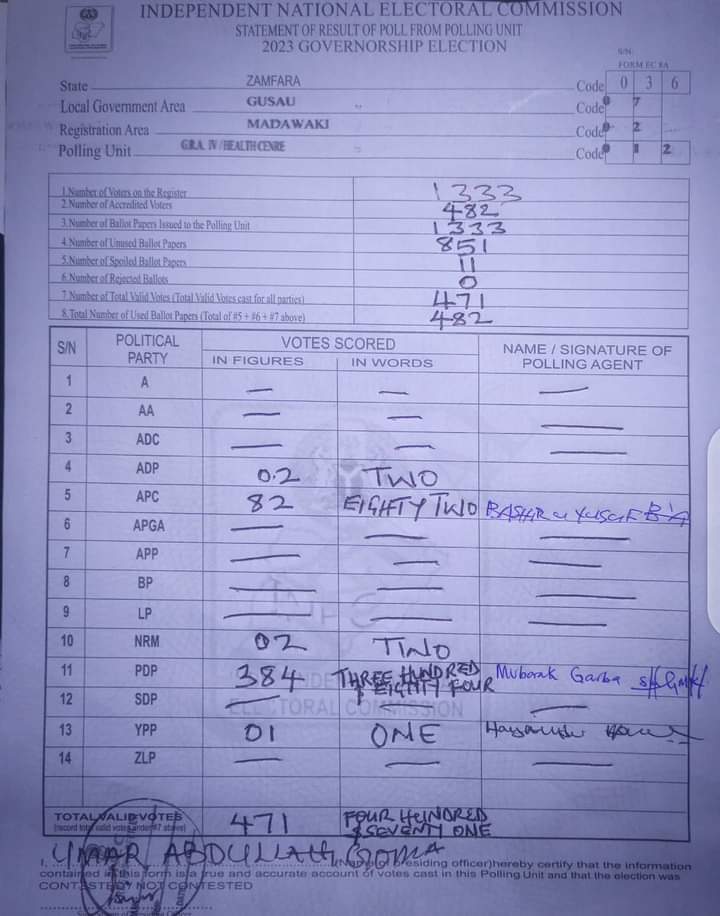 INDEPENDENT NATIONAL ELECTORAL COMMISSION
STATEMENT OF RESULT OF POLL FROM POLLING UNIT
2023 GOVERNORSHIP ELECTION
S/N:
FORM EC 8A
State ZAMFARA Code 0 3 6
Local Government Area GUSAU Code 0 7
Registration Area MADAWAKI Code 0 2
Polling Unit G.R.A. IV/HEALTH CENRE Code 0 1 2
1.Number of Voters on the Register 1333
2.Number of Accredited Voters 482
3.Number of Ballot Papers Issued to the Polling Unit 1333
4.Number of Unused Ballot Papers 851
5.Number of Spoiled Ballot Papers 11
6.Number of Rejected Ballots 0
7.Number of Total Valid Votes (Total Valid Votes cast for all parties) 471
8.Total Number of Used Ballot Papers (Total of #5 + #6 + #7 above) 482
S/N POLITICAL PARTY VOTES SCORED NAME / SIGNATURE OF POLLING AGENT
IN FIGURES IN WORDS
1 A — — —
2 AA — — —
3 ADC — — —
4 ADP 02 TWO
5 APC 82 EIGHTY TWO BASHIR YUSUF B/A
6 APGA — — —
7 APP — — —
8 BP — — —
9 LP — — —
10 NRM 02 TWO
11 PDP 384 THREE HUNDRED & EIGHTY FOUR Mubarak Garba
12 SDP — — —
13 YPP 01 ONE
14 ZLP — — —
TOTAL VALID VOTES 471 FOUR HUNDRED & SEVENTY ONE
(record total valid votes under #7 above)
I, UMAR ABDULLAHI (Name of presiding officer) hereby certify that the information
contained in this form is a true and accurate account of votes cast in this Polling Unit and that the election was
CONTESTED/NOT CONTESTED